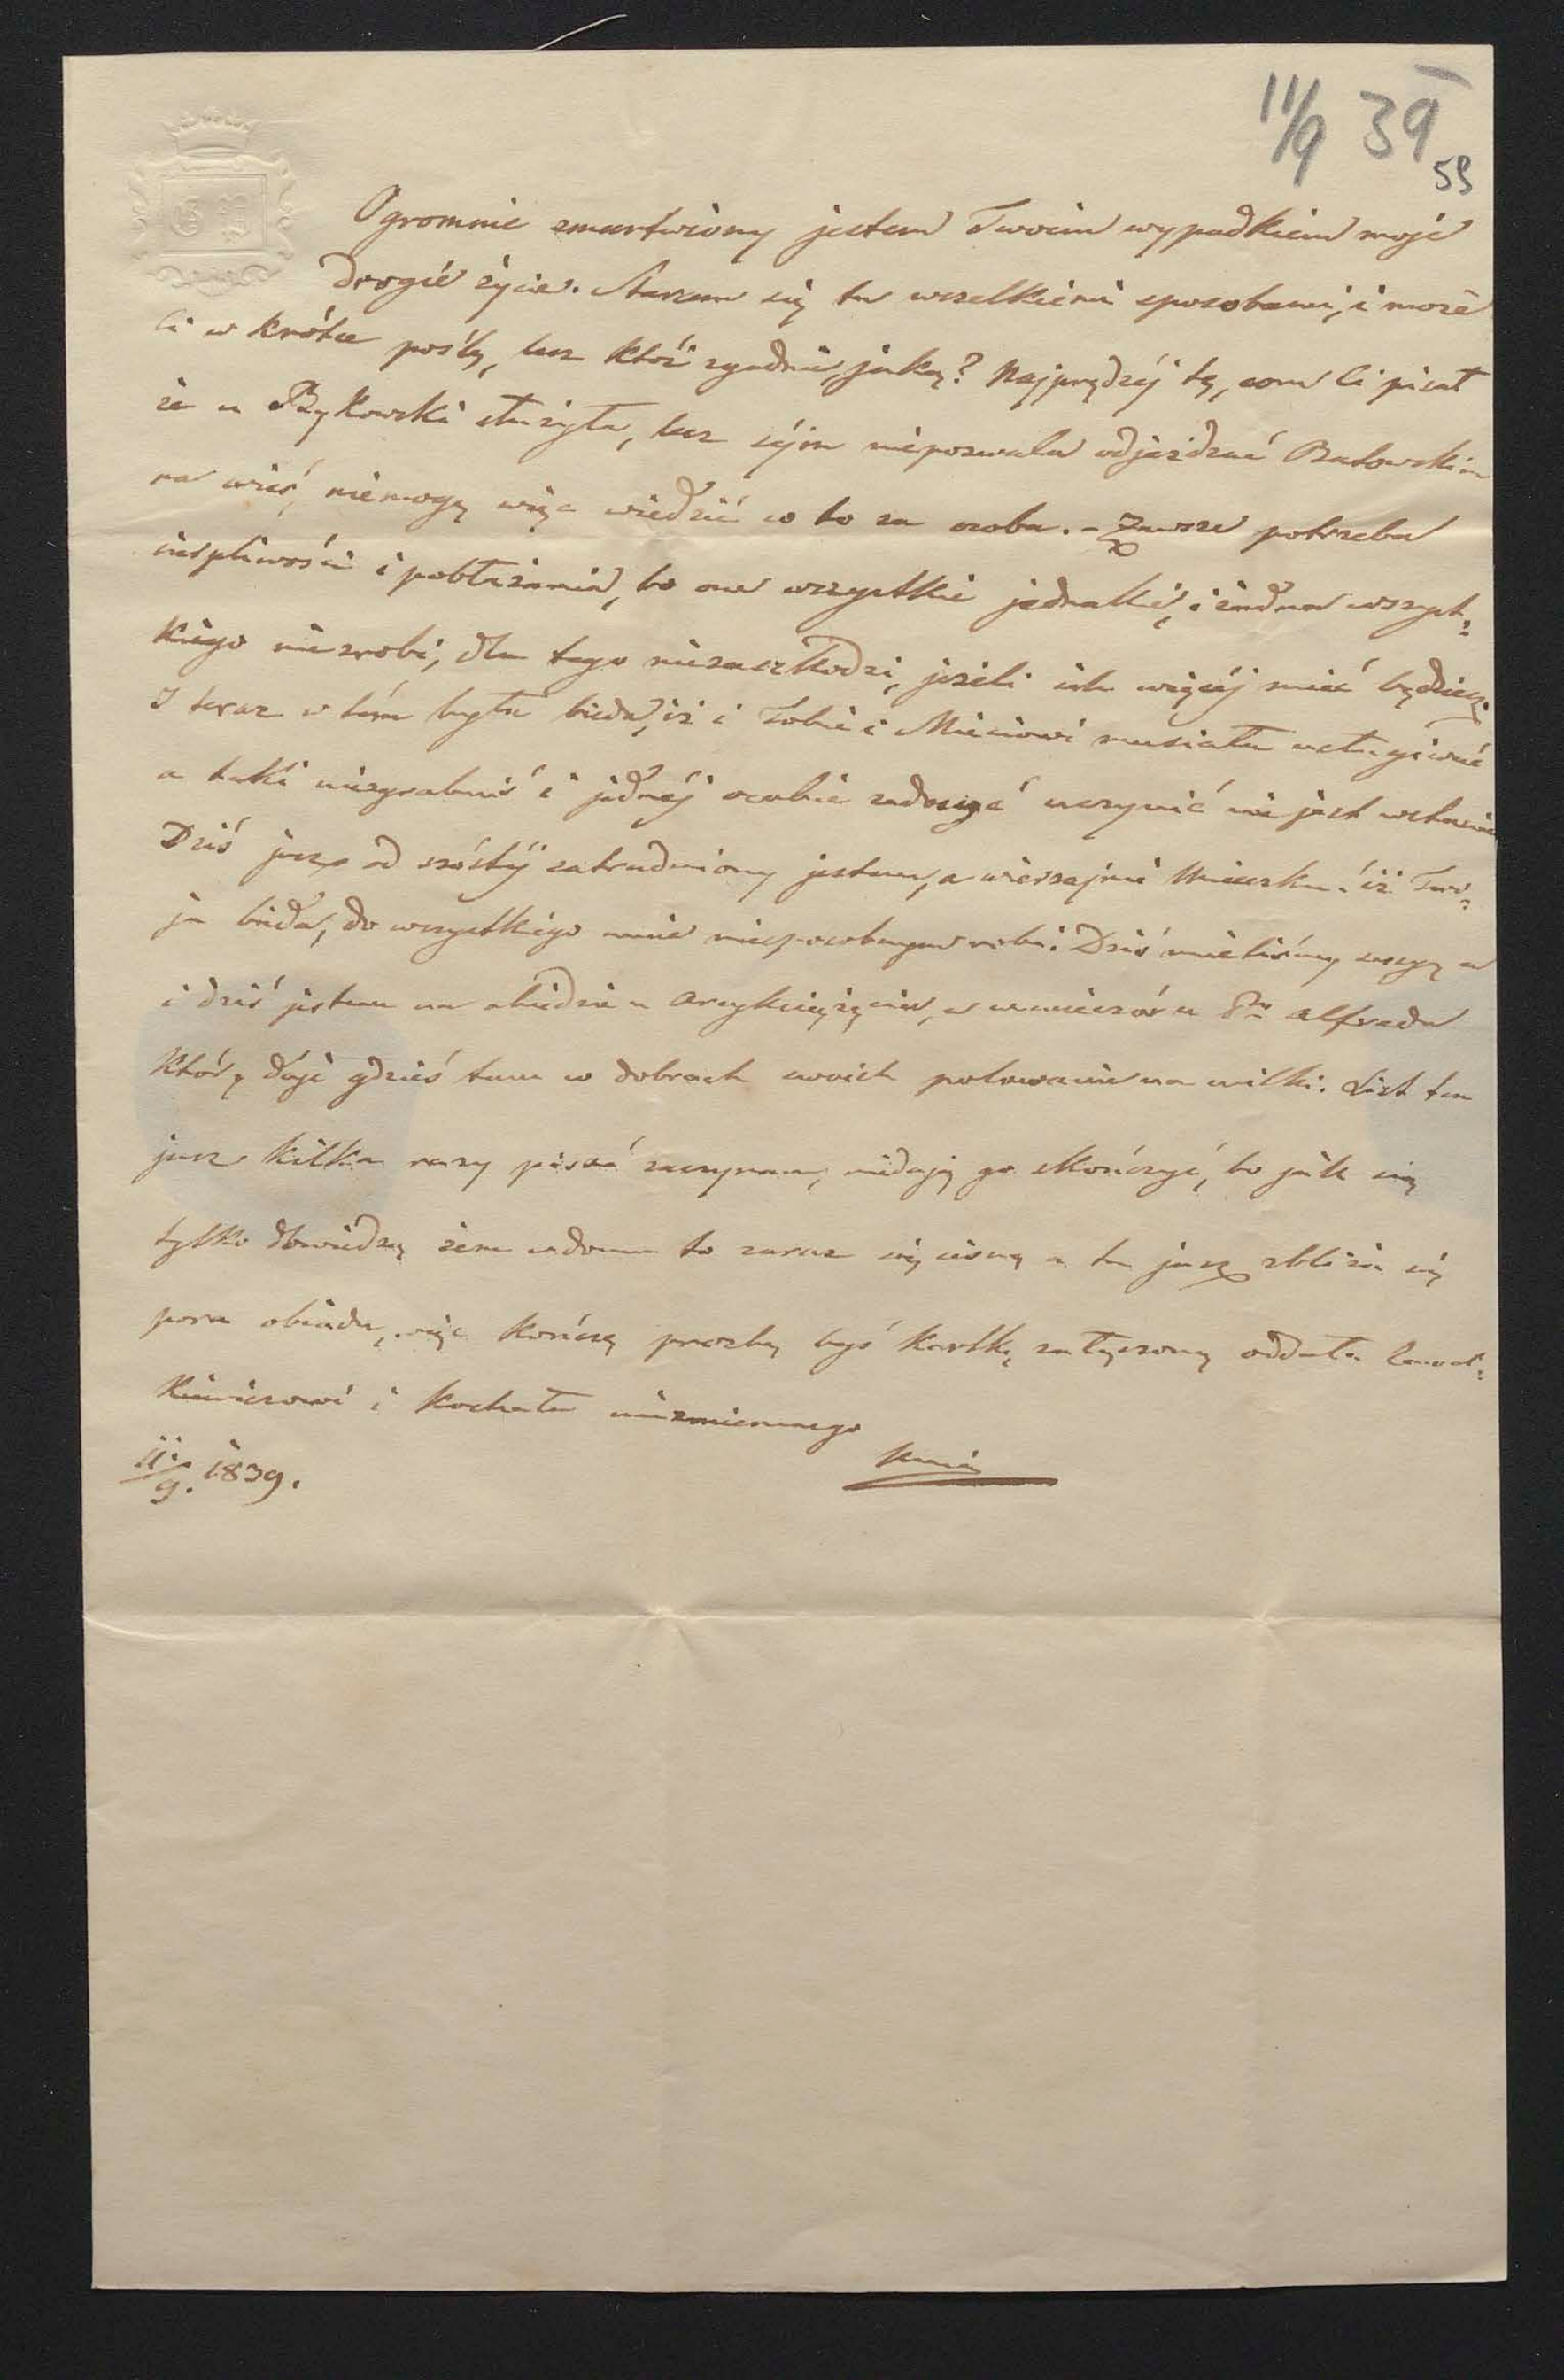 11/9 39
59
Ogromnie zmartwiony jestem Twoim wypadkiem moje
drogie życie. Staram się tu wszelkiemi sposobami, i może
Ci w krótce poślę, lecz któż zgadnie, jaką? Najprędzéj tę, com Ci pisał
że u Bykowski służyła, lecz séjm niepozwala odjeżdzać Batowskim
na wieś, niemogę więc wiedzić co to za osoba. – Zawsze potrzeba
cierpliwości i pobłażania, bo one wszystkie jednakie, i żadna wszyst=
kiego niezrobi, dla tego niezaszkodzi, jeżeli ich więcéj mieć będziesz,
I teraz w tém była bieda, iż i Tobie i Mieciowi musiała usługiwać
a taki niezgrabuś i jednéj osobie zadosyć uczynić nie jest wstanie
Dziś jusz od szóstéj zatrudniony jestem, a wierzaj mi Unieczku! iż Two=
ja bieda, do wszystkiego mnie niesposobnym robi. Dziś mieliśmy sesyę
i dziś jestem na obiedzie u Arcyksięcia, a wieczór u Alfreda
który daje gdzieś tam w dobrach swoich polowanie na wilki. List ten
jusz kilka razy pisać zaczynam, niedają go skończyć, bo jak się
tylko dowiedzą żem w domu to zaraz się cisną a tu jusz zbliża się
pora obiadu, więc kończę prozbą byś kartkę załączoną oddała
kiewiczowi i kochała niezmiennego
11./9. 1839.